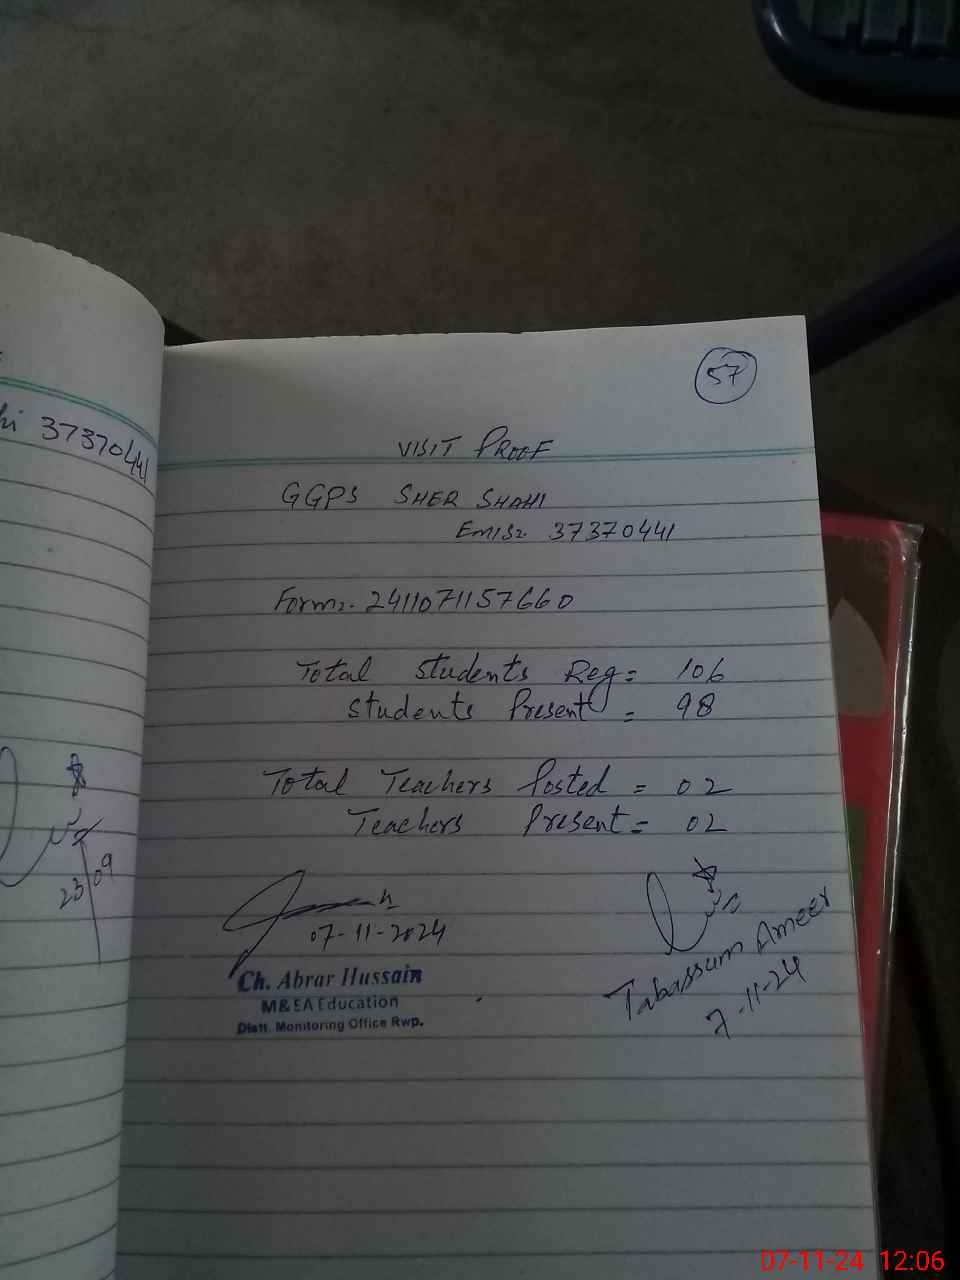 37370441
23/09
57
VISIT PROOF
GGPS SHER SHAHI
EMIS:- 37370441
Form:- 2411071157660
Total Students Reg = 106
Students Present = 98
Total Teachers Posted = 02
Teachers Present = 02
07-11-2024
Ch. Abrar Hussain
M&EA Education
Distt. Monitoring Office Rwp.
Tabassum Ameer
7-11-24
07-11-24 12:06